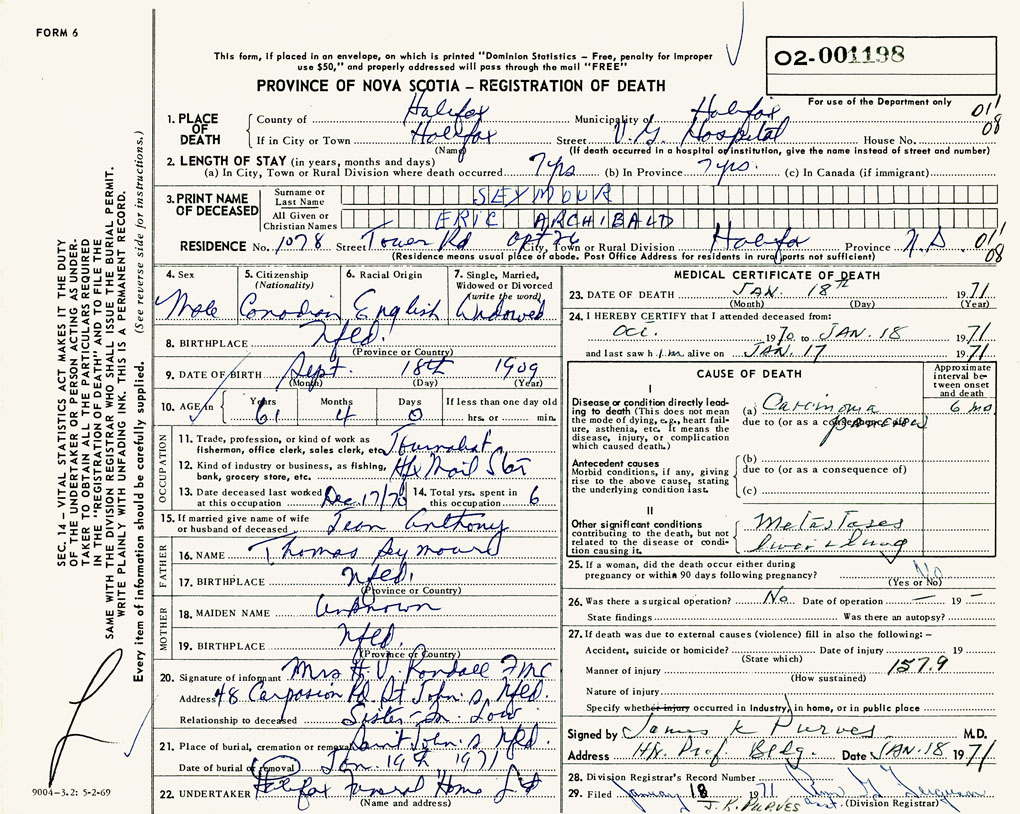 FORM 6
This form, if placed in an envelope, on which is printed "Dominion Statistics – Free, penalty for improper
use $50," and properly addressed will pass through the mail "FREE"
PROVINCE OF NOVA SCOTIA – REGISTRATION OF DEATH
02-001198
For use of the Department only
1. PLACE OF DEATH
County of Halifax Municipality of Halifax 01'
If in City or Town Halifax Street V.G. Hospital House No. 08
(Name) (If death occurred in a hospital or institution, give the name instead of street and number)
2. LENGTH OF STAY (in years, months and days)
(a) In City, Town or Rural Division where death occurred 7 yrs (b) In Province 7 yrs. (c) In Canada (if immigrant)
3. PRINT NAME OF DECEASED
Surname or Last Name SEYMOUR
All Given or Christian Names ERIC ARCHIBALD
RESIDENCE No. 1078 Street Tower Rd Apt 76 City, Town or Rural Division Halifax Province N.S 01'
08
(Residence means usual place of abode. Post Office Address for residents in rural parts not sufficient)
4. Sex Male
5. Citizenship (Nationality) Canadian
6. Racial Origin English
7. Single, Married, Widowed or Divorced (write the word) Widowed
8. BIRTHPLACE Nfld.
(Province or Country)
9. DATE OF BIRTH Sept. 18th 1909
(Month) (Day) (Year)
10. AGE in Years 61 Months 4 Days 0 If less than one day old
hrs. or min.
OCCUPATION
11. Trade, profession, or kind of work as
fisherman, office clerk, sales clerk, etc. Journalist
12. Kind of industry or business, as fishing,
bank, grocery store, etc. Hfx Mail Star
13. Date deceased last worked at this occupation Dec. 17/70
14. Total yrs. spent in this occupation 6
15. If married give name of wife
or husband of deceased Jean Anthony
FATHER
16. NAME Thomas Seymour
17. BIRTHPLACE Nfld.
(Province or Country)
MOTHER
18. MAIDEN NAME Unknown
19. BIRTHPLACE Nfld.
(Province or Country)
20. Signature of informant Mrs H. V. Rendall
Address 48 Carpasian Rd. St John's, Nfld.
Relationship to deceased Sister-In-Law
21. Place of burial, cremation or removal Saint John's Nfld.
Date of burial or removal Jan. 19th 1971
22. UNDERTAKER Halifax Funeral Home Ltd
(Name and address)
MEDICAL CERTIFICATE OF DEATH
23. DATE OF DEATH JAN. 18th 1971
(Month) (Day) (Year)
24. I HEREBY CERTIFY that I attended deceased from:
Oct. 1970 to JAN. 18 1971
and last saw him alive on JAN. 17 1971
CAUSE OF DEATH
Approximate interval between onset and death
I
Disease or condition directly leading to death (This does not mean the mode of dying, e.g., heart failure, asthenia, etc. It means the disease, injury, or complication which caused death.)
(a) Carcinoma 6 mo
due to (or as a consequence of) pancreas
Antecedent causes
Morbid conditions, if any, giving rise to the above cause, stating the underlying condition last.
(b)
due to (or as a consequence of)
(c)
II
Other significant conditions
contributing to the death, but not related to the disease or condition causing it.
Metastases
liver + lung
25. If a woman, did the death occur either during
pregnancy or within 90 days following pregnancy? No
(Yes or No)
26. Was there a surgical operation? No Date of operation — 19 —
State findings Was there an autopsy?
27. If death was due to external causes (violence) fill in also the following: –
Accident, suicide or homicide? Date of injury 19
(State which)
Manner of injury 157.9
(How sustained)
Nature of injury
Specify whether injury occurred in Industry, in home, or in public place
Signed by James K Purves M.D.
Address Hfx. Prof. Bldg. Date JAN. 18 1971
28. Division Registrar's Record Number
29. Filed January 18 1971 Ferguson
J.K. PURVES (Division Registrar)
SEC. 14 – VITAL STATISTICS ACT MAKES IT THE DUTY
OF THE UNDERTAKER OR PERSON ACTING AS UNDERTAKER
TO OBTAIN ALL THE PARTICULARS REQUIRED
IN THE "REGISTRATION OF DEATH" AND TO FILE THE
SAME WITH THE DIVISION REGISTRAR WHO SHALL ISSUE THE BURIAL PERMIT.
WRITE PLAINLY WITH UNFADING INK. THIS IS A PERMANENT RECORD.
Every item of information should be carefully supplied. (See reverse side for instructions.)
9004-3.2: 5-2-69